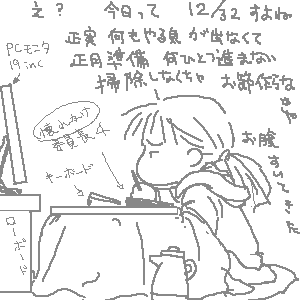 え? 今日って 12/32 すよね
正実 何もやる気が出なくて
正月準備 何ひとつ進まない
掃除しなくちゃ お節作らな
きゃ
お腹すいてきた
PCモニタ
19inc
壊れかけ
キーボード
ローボード